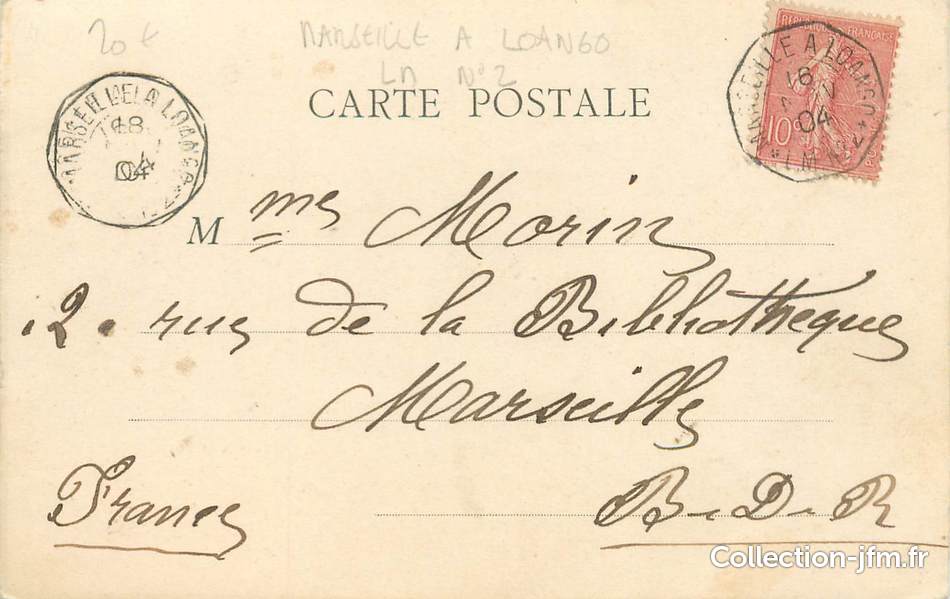 20 €
MARSEILLE A LOANGO
LN N°2
CARTE POSTALE
REPUBLIQUE FRANÇAISE
10 c
MARSEILLE A LOANGO
16
04
L.N. N° 2
MARSEILLE A LOANGO
18
04
Mme Morin
.2. rue de la Bibliothèque
Marseille
France
B. D. R
Collection-jfm.fr